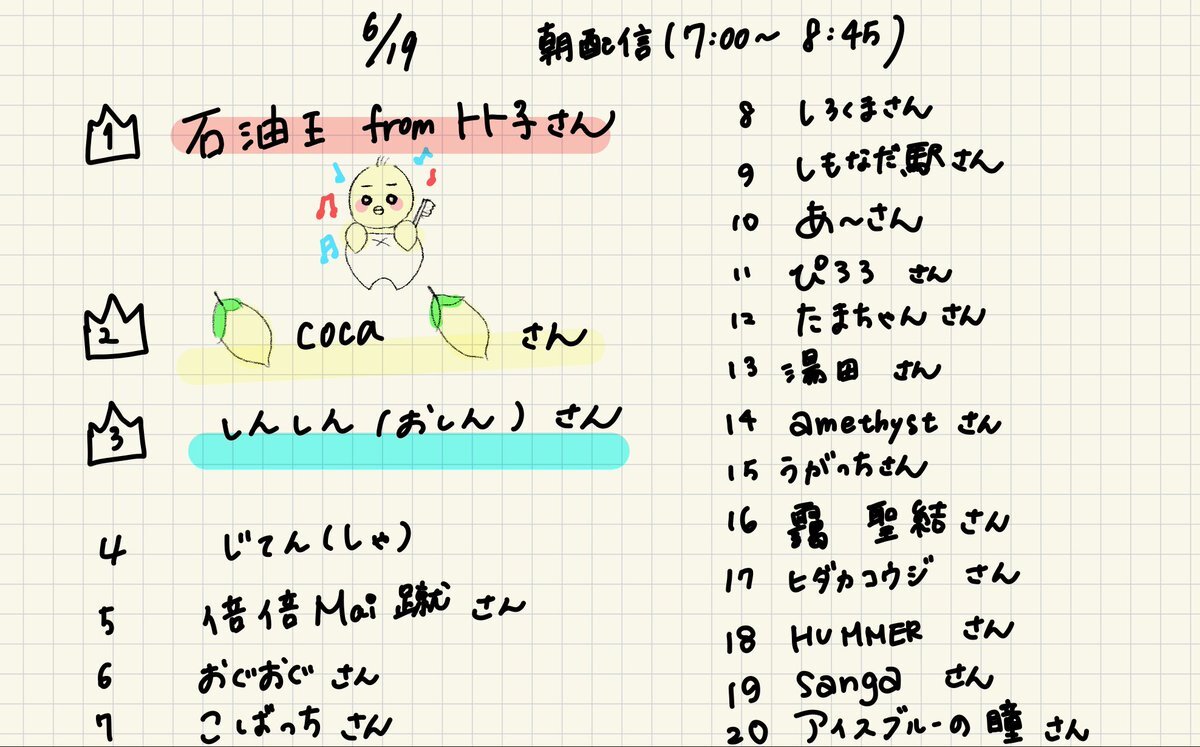 6/19 朝配信(7:00～8:45)
1 石油王 from トト子さん
2 coca さん
3 しんしん(おしん)さん
4 じてん(しゃ)
5 倍倍Mai蹴 さん
6 おぐおぐ さん
7 こばっち さん
8 しろくまさん
9 しもなだ駅さん
10 あ～さん
11 ぴろろ さん
12 たまちゃん さん
13 湯田 さん
14 amethyst さん
15 うがっちさん
16 聖結さん
17 ヒダカコウジ さん
18 HUMMER さん
19 sanga さん
20 アイスブルーの瞳 さん